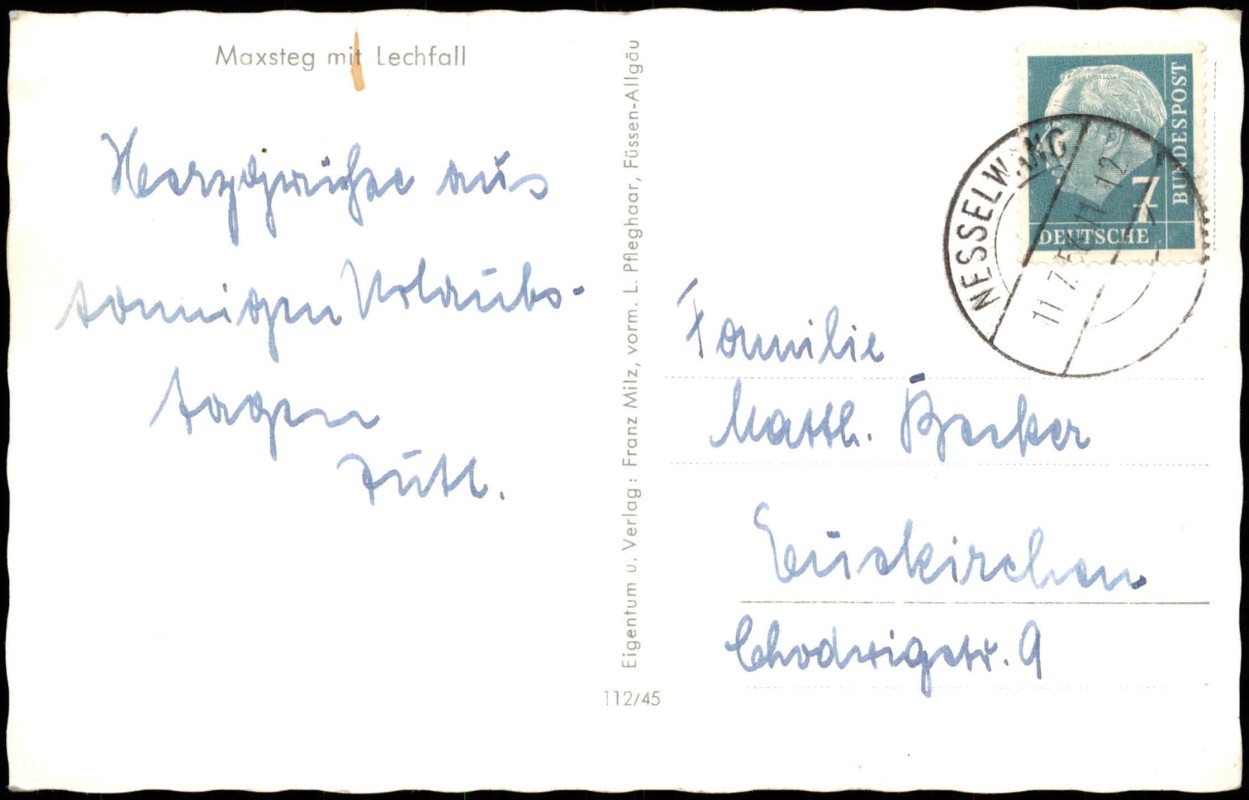 Maxsteg mit Lechfall
Herzgrüße aus
sonnigen Urlaubs-
tagen
Eigentum u. Verlag: Franz Milz, vorm. L. Pfleghaar, Füssen-Allgäu
112/45
BUNDESPOST
7
DEUTSCHE
NESSELWANG
Familie
Matth. Becker
Euskirchen
Chlodwigstr. 9